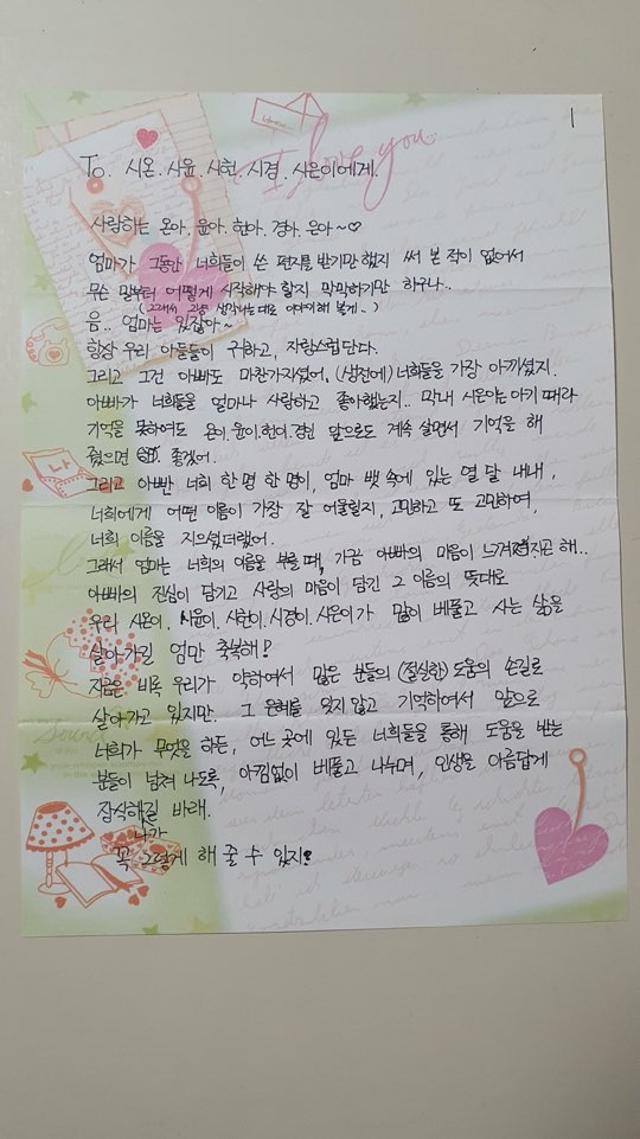 1
I love you
To. 시온. 시윤. 시헌. 시경. 시은이에게.
사랑하는 온아. 윤아. 헌아. 경아. 은아~♡
엄마가 그동안 너희들이 쓴 편지를 받기만 했지 써 본 적이 없어서
무슨 말부터 어떻게 시작해야 할지 막막하기만 하구나..
(그래서 그냥 생각나는대로 이야기해 볼게~)
음.. 엄마는 있잖아~
항상 우리 아들들이 귀하고, 자랑스럽단다.
그리고 그건 아빠도 마찬가지셨어. (생전에) 너희들을 가장 아끼셨지.
아빠가 너희들을 얼마나 사랑하고 좋아했는지.. 막내 시은이는 아기 때라
기억을 못하여도 온이.윤이.헌이.경인 앞으로도 계속 살면서 기억을 해
줬으면 좋겠어.
그리고 아빤 너희 한 명 한 명이, 엄마 뱃 속에 있는 열 달 내내,
너희에게 어떤 이름이 가장 잘 어울릴지, 고민하고 또 고민하여,
너희 이름을 지으셨더랬어.
그래서 엄마는 너희의 이름을 부를 때, 가끔 아빠의 마음이 느껴지곤 해..
아빠의 진심이 담기고 사랑의 마음이 담긴 그 이름의 뜻대로
우리 시온이. 시윤이. 시헌이. 시경이. 시은이가 많이 베풀고 사는 삶을
살아가길 엄만 축복해!
지금은 비록 우리가 약하여서 많은 분들의 (절실한) 도움의 손길로
살아가고 있지만. 그 은혜를 잊지 않고 기억하여서 앞으로
너희가 무엇을 하든, 어느 곳에 있든 너희들을 통해 도움을 받는
분들이 넘쳐 나도록, 아낌없이 베풀고 나누며, 인생을 아름답게
장식해 나가길 바래.
꼭 그렇게 해 줄 수 있지?